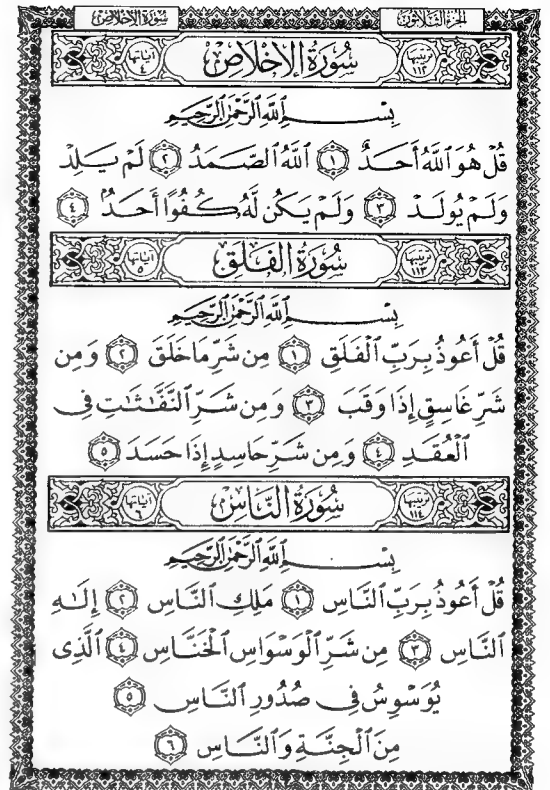 الجزء الثلاثون سورة الإخلاص
ترتيبها ١١٢ سُورَةُ الإِخْلَاصِ آياتها ٤
بِسْمِ ٱللَّهِ ٱلرَّحْمَٰنِ ٱلرَّحِيمِ
قُلْ هُوَ ٱللَّهُ أَحَدٌ ١ ٱللَّهُ ٱلصَّمَدُ ٢ لَمْ يَلِدْ
وَلَمْ يُولَدْ ٣ وَلَمْ يَكُن لَّهُۥ كُفُوًا أَحَدٌۢ ٤
ترتيبها ١١٣ سُورَةُ الفَلَقِ آياتها ٥
بِسْمِ ٱللَّهِ ٱلرَّحْمَٰنِ ٱلرَّحِيمِ
قُلْ أَعُوذُ بِرَبِّ ٱلْفَلَقِ ١ مِن شَرِّ مَا خَلَقَ ٢ وَمِن
شَرِّ غَاسِقٍ إِذَا وَقَبَ ٣ وَمِن شَرِّ ٱلنَّفَّٰثَٰتِ فِى
ٱلْعُقَدِ ٤ وَمِن شَرِّ حَاسِدٍ إِذَا حَسَدَ ٥
ترتيبها ١١٤ سُورَةُ النَّاسِ آياتها ٦
بِسْمِ ٱللَّهِ ٱلرَّحْمَٰنِ ٱلرَّحِيمِ
قُلْ أَعُوذُ بِرَبِّ ٱلنَّاسِ ١ مَلِكِ ٱلنَّاسِ ٢ إِلَٰهِ
ٱلنَّاسِ ٣ مِن شَرِّ ٱلْوَسْوَاسِ ٱلْخَنَّاسِ ٤ ٱلَّذِى
يُوَسْوِسُ فِى صُدُورِ ٱلنَّاسِ ٥
مِنَ ٱلْجِنَّةِ وَٱلنَّاسِ ٦